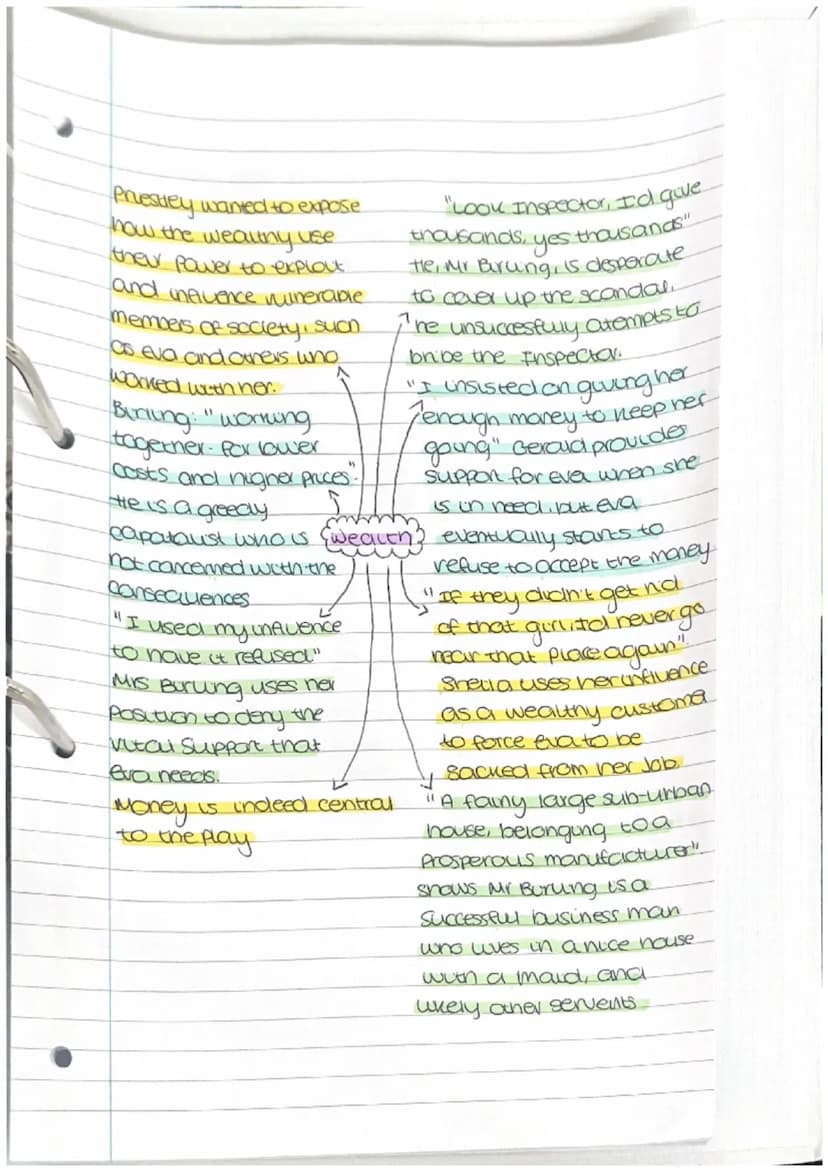 Priestley wanted to expose
how the wealthy use
their power to exploit
and influence vulnerable
members of society, such
as eva and others who
worked with her.
Birling: "working
together - for lower
costs and higher prices".
He is a greedy
capatalist who is
not concerned with the
consequences
"I used my influence
to have it refused"
Mrs Birling uses her
position to deny the
vital support that
eva needs.
Money is indeed central
to the play
wealth
"Look Inspector, I'd give
thousands, yes thousands"
He, Mr Birling, is desperate
to cover up the scandal,
he unsuccesfully atempts to
bribe the Inspector.
"I insisted on giving her
enough money to keep her
going" Gerald provides
support for eva when she
is in need, but eva
eventually starts to
refuse to accept the money
"If they didn't get rid
of that girl, I'd never go
near that place again".
Sheila uses her influence
as a wealthy customer
to force eva to be
sacked from her job.
"A fairly large sub-urban
house, belonging to a
prosperous manufacturer".
shows Mr Birling is a
successful business man
who lives in a nice house
with a maid, and
likely other servents